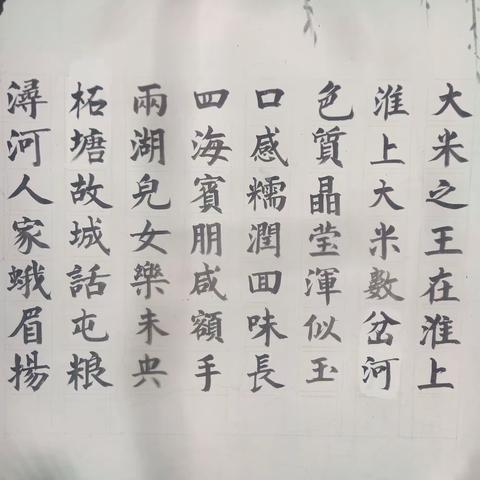 大米之王在淮上
淮上大米數岔河
色質晶莹渾似玉
口感糯潤回味長
四海賓朋咸額手
兩湖兒女樂未央
柘塘故城話屯粮
潯河人家蛾眉揚